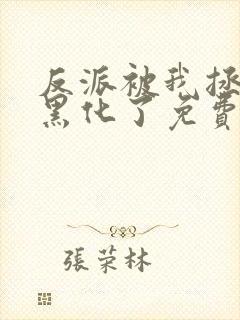 反派被我拯
黑化了免費
張荣林